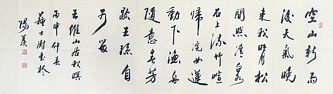 空山新雨
後天氣晚
来秋明月松
間照清泉
石上流竹喧
歸浣女蓮
動下漁舟
隨意春芳
歇王孫自
可留
王維山居秋暝
丙申仲
蘇士澍書於
陽羨